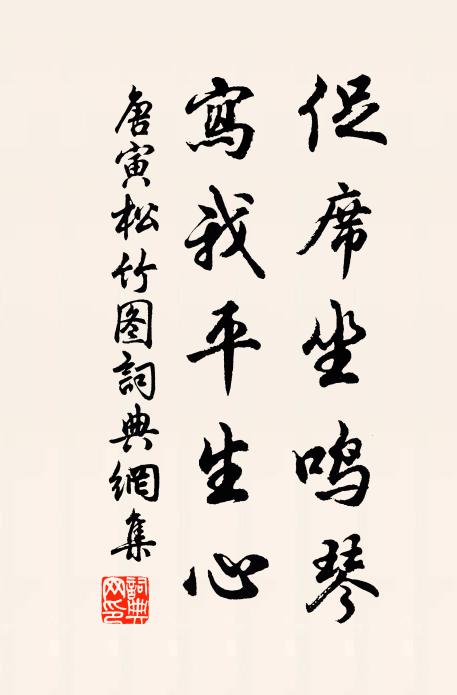 促席坐鳴琴
寫我平生心
唐寅松竹图詞典網集
詞典网印